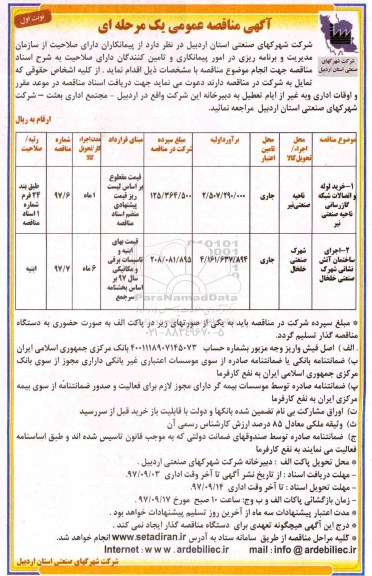 نوبت اول
آگهی مناقصه عمومی یک مرحله ای
شرکت شهرکهای صنعتی استان اردبیل
شرکت شهرکهای صنعتی استان اردبیل در نظر دارد از پیمانکاران دارای صلاحیت از سازمان
مدیریت و برنامه ریزی در امور پیمانکاری و تامین کنندگان دارای صلاحیت به شرح اسناد
مناقصه جهت انجام موضوع مناقصه با مشخصات ذیل اقدام نماید . از کلیه اشخاص حقوقی که
تمایل به شرکت در مناقصه دارند دعوت می نماید جهت دریافت اسناد مناقصه در موعد مقرر
و اوقات اداری وبه غیر از ایام تعطیل به دبیرخانه این شرکت واقع در اردبیل - مجتمع اداری بعثت – شرکت
شهرکهای صنعتی استان اردبیل مراجعه نمائید.
ارقام به ریال
موضوع مناقصه | محل اجراء/ تحویل کالا | محل تامین اعتبار | برآورداولیه | مبلغ سپرده شرکت در مناقصه | مبنای قرارداد | مدت اجراء کار/تحویل کالا | شماره مناقصه | رتبه/ صلاحیت
۱-خرید لوله و اتصالات شبکه گازرسانی ناحیه صنعتی نیر | ناحیه صنعتی نیر | جاری | ۲/۵۰۷/۲۹۰/۰۰۰ | ۱۲۵/۳۶۴/۵۰۰ | قیمت مقطوع بر اساس لیست ریز قیمت پیشنهادی منضم اسناد مناقصه | ۱ ماه | ۹۷/۶ | طبق بند ۲۴ فرم شماره ۱ اسناد مناقصه
۲-اجرای ساختمان آتش نشانی شهرک صنعتی خلخال | شهرک صنعتی خلخال | جاری | ۴/۱۶۱/۶۳۷/۸۹۴ | ۲۰۸/۰۸۱/۸۹۵ | قیمت بهای ابنیه و تاسیسات برقی و مکانیکی سال ۹۷ بر اساس بخشنامه سرجمع | ۶ ماه | ۹۷/۷ | ابنیه
* مبلغ سپرده شرکت در مناقصه باید به یکی از صورتهای زیر در پاکت الف به صورت حضوری به دستگاه
مناقصه گذار تسلیم گردد.
. الف) اصل فیش واریز وجه مزبور بشماره حساب ۴۰۰۱۱۱۸۹۰۷۱۴۵۰۷۳ بانک مرکزی جمهوری اسلامی ایران
ب) ضمانتنامه بانکی یا ضمانتنامه صادره از سوی موسسات اعتباری غیر بانکی داراری مجوز از سوی بانک
مرکزی جمهوری اسلامی ایران به نفع کارفرما
پ) ضمانتنامه صادره توسط موسسات بیمه گر دارای مجوز لازم برای فعالیت و صدور ضمانتنامه از سوی بیمه
مرکزی ایران به نفع کارفرما
ت) اوراق مشارکت بی نام تضمین شده بانکها و دولت با قابلیت باز خرید قبل از سررسید
ث) وثیقه ملکی معادل ۸۵ درصد ارزش کارشناس رسمی آن
ج) ضمانتنامه صادره توسط صندوقهای ضمانت دولتی که به موجب قانون تاسیس شده اند و طبق اساسنامه
فعالیت می نمایند به نفع کارفرما
* محل تحویل پاکت الف : دبیرخانه شرکت شهرکهای صنعتی اردبیل .
- مهلت دریافت اسناد : از تاریخ نشر آگهی تا آخر وقت اداری ۹۷/۰۹/۰۳.
- مهلت تحویل اسناد : تا آخر وقت اداری ۹۷/۰۹/۱۴
- زمان بازگشائی پاکات الف و ب وج: ساعت ۱۰ صبح مورخ ۹۷/۰۹/۱۷ .
- مدت اعتبار پیشنهادات سه ماه از آخرین روز تسلیم پیشنهادات خواهد بود .
* درج این آگهی هیچگونه تعهدی برای دستگاه مناقصه گذار ایجاد نمی کند .
* کلیه مراحل مناقصه از طریق سامانه ستاد به آدرس www.setadiran.ir انجام خواهد شد.
Internet : w w w . ardebiliec.ir mail : info @ ardebiliec.ir
شرکت شهرکهای صنعتی استان اردبیل
ParsNamadData
۰۲۱-۸۸۳۴۹۶۷۰-۵